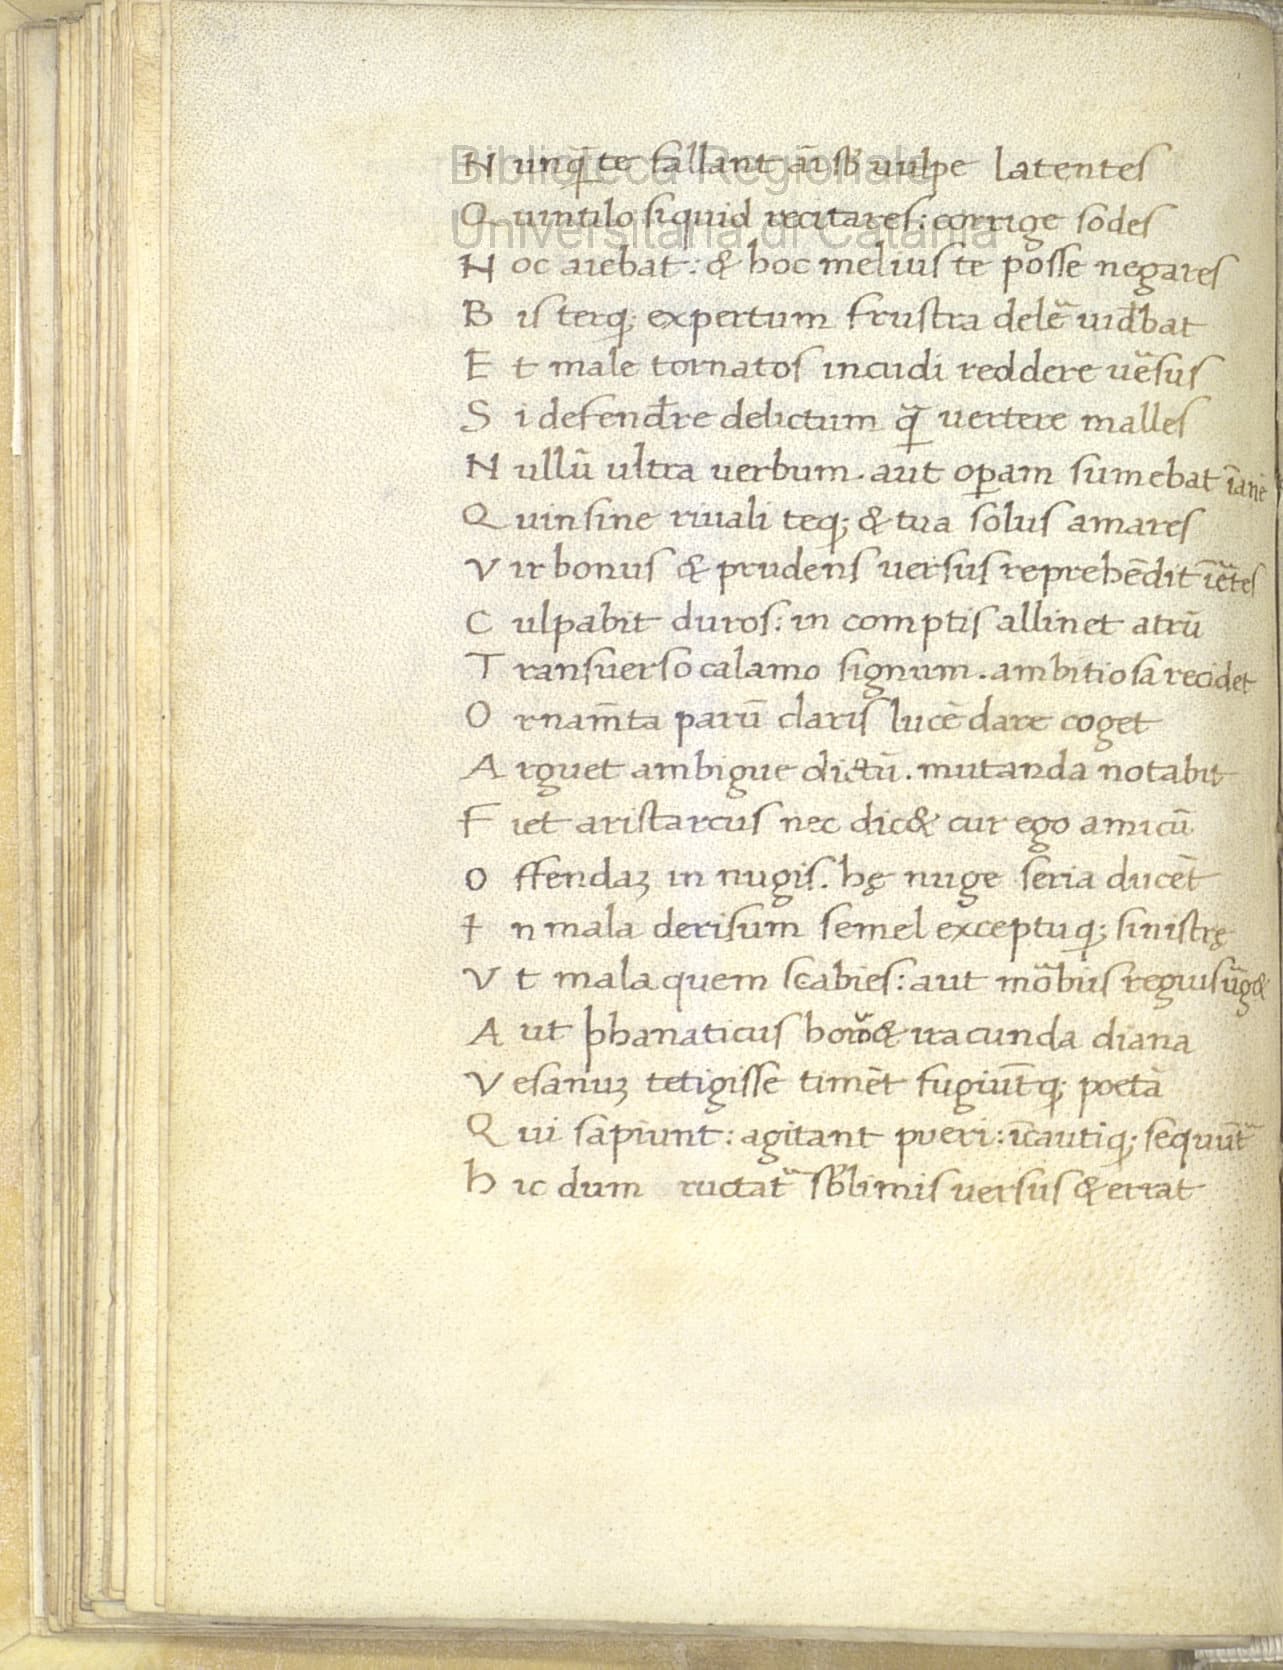 Biblioteca Regionale
Universitaria di Catania
N unq̃ te fallant aĩ sb̾ uulpe latentes
Q uintilo siquid recitares: corrige sodes
H oc aiebat: & hoc melius te posse negares
B is terq; expertum frustra delẽ uidb̄at
E t male tornatos incudi reddere uẽsus
S i defend̄re delictum q̃ vertere malles
N ullū ultra uerbum. aut oꝑam sumebat īanē
Q uin sine riuali teq; & tua solus amares
V ir bonus & prudens uersus reprehēdit īẽtes
C ulpabit duros: in comptis allinet atrū
T ransuerso calamo signum. ambitiosa recidet
O rnam̄ta parū claris lucē dare coget
A rguet ambigue dictū. mutanda notabit
F iet aristarcus nec dic& cur ego amicū
O ffendaꝫ in nugis. hę nuge seria ducēt
I n mala derisum semel exceptuq; sinistrę
V t mala quem scabies: aut mõbus regius ũg&
A ut phanaticus & iracunda diana
V esanuꝫ tetigisse timēt fugiūtq; poetā
Q ui sapiunt: agitant pueri: īcautiq; sequūt̃
H ic dum ructat̃ sb̾limis versus & errat